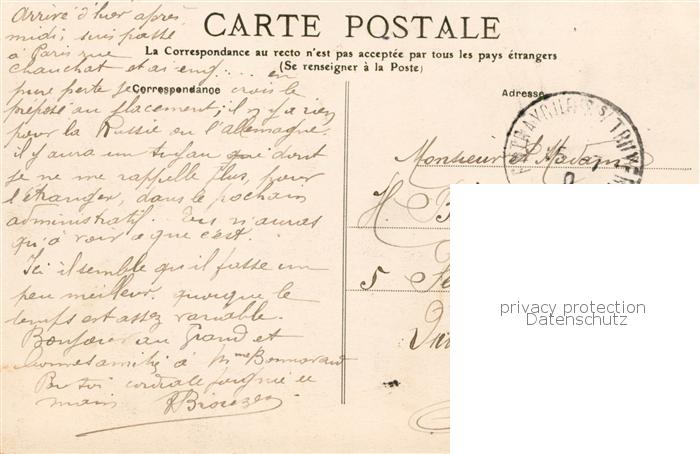 Arrivé d'hier après
midi, suis passé
à Paris rue
Chauchat et ai eng.... en
pure perte je crois le
préposé au placement; il n'y a rien
pour la Russie ou l'allemagne.
il y aura un tuyau que dont
je ne me rappelle plus, pour
l'étranger, dans le prochain
administratif. Tu n'auras
qu'à voir ce que c'est.
Ici il semble qu'il fasse un
peu meilleur. quoique le
temps est assez variable.
Bonjour au Grand et
amitié à Mme
cordiale poignée de
main
CARTE POSTALE
La Correspondance au recto n'est pas acceptée par tous les pays étrangers
(Se renseigner à la Poste)
Correspondance
Adresse
Monsieur et Madame
H. B
5
privacy protection
Datenschutz